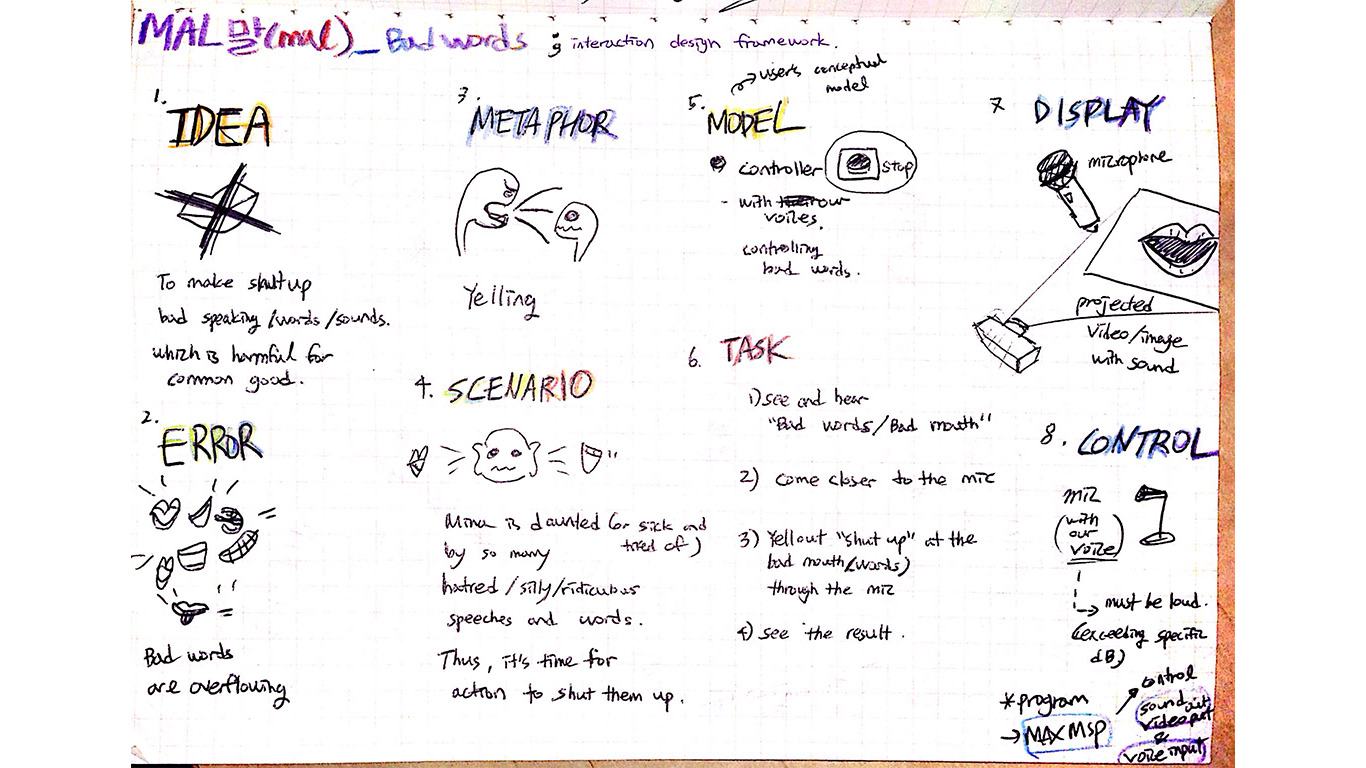 MAL 말(mal)_Bad words ; interaction design framework.
1.
IDEA
To make shut up
bad speaking/words/sounds.
which is harmful for
common good.
2.
ERROR
Bad words
are overflowing
3.
METAPHOR
Yelling
4. SCENARIO
Mina is daunted (or sick and
tired of)
by so many
hatred/silly/ridiculous
speeches and words.
Thus, it's time for
action to shut them up.
→ user's conceptual
model
5.
MODEL
controller
stop
- with our
voices.
controlling
bad words.
6. TASK
1) see and hear
"Bad words/Bad mouth"
2) come closer to the mic
3) Yell out "shut up" at the
bad mouth(words)
through the mic
4) see the result.
7 DISPLAY
microphone
projected
video/image
with sound
8. CONTROL
mic
(with
our
voice)
→ must be loud.
(exceeding specific
dB)
*program
→ MAX MSP
control
sound out
video put
&
voice input